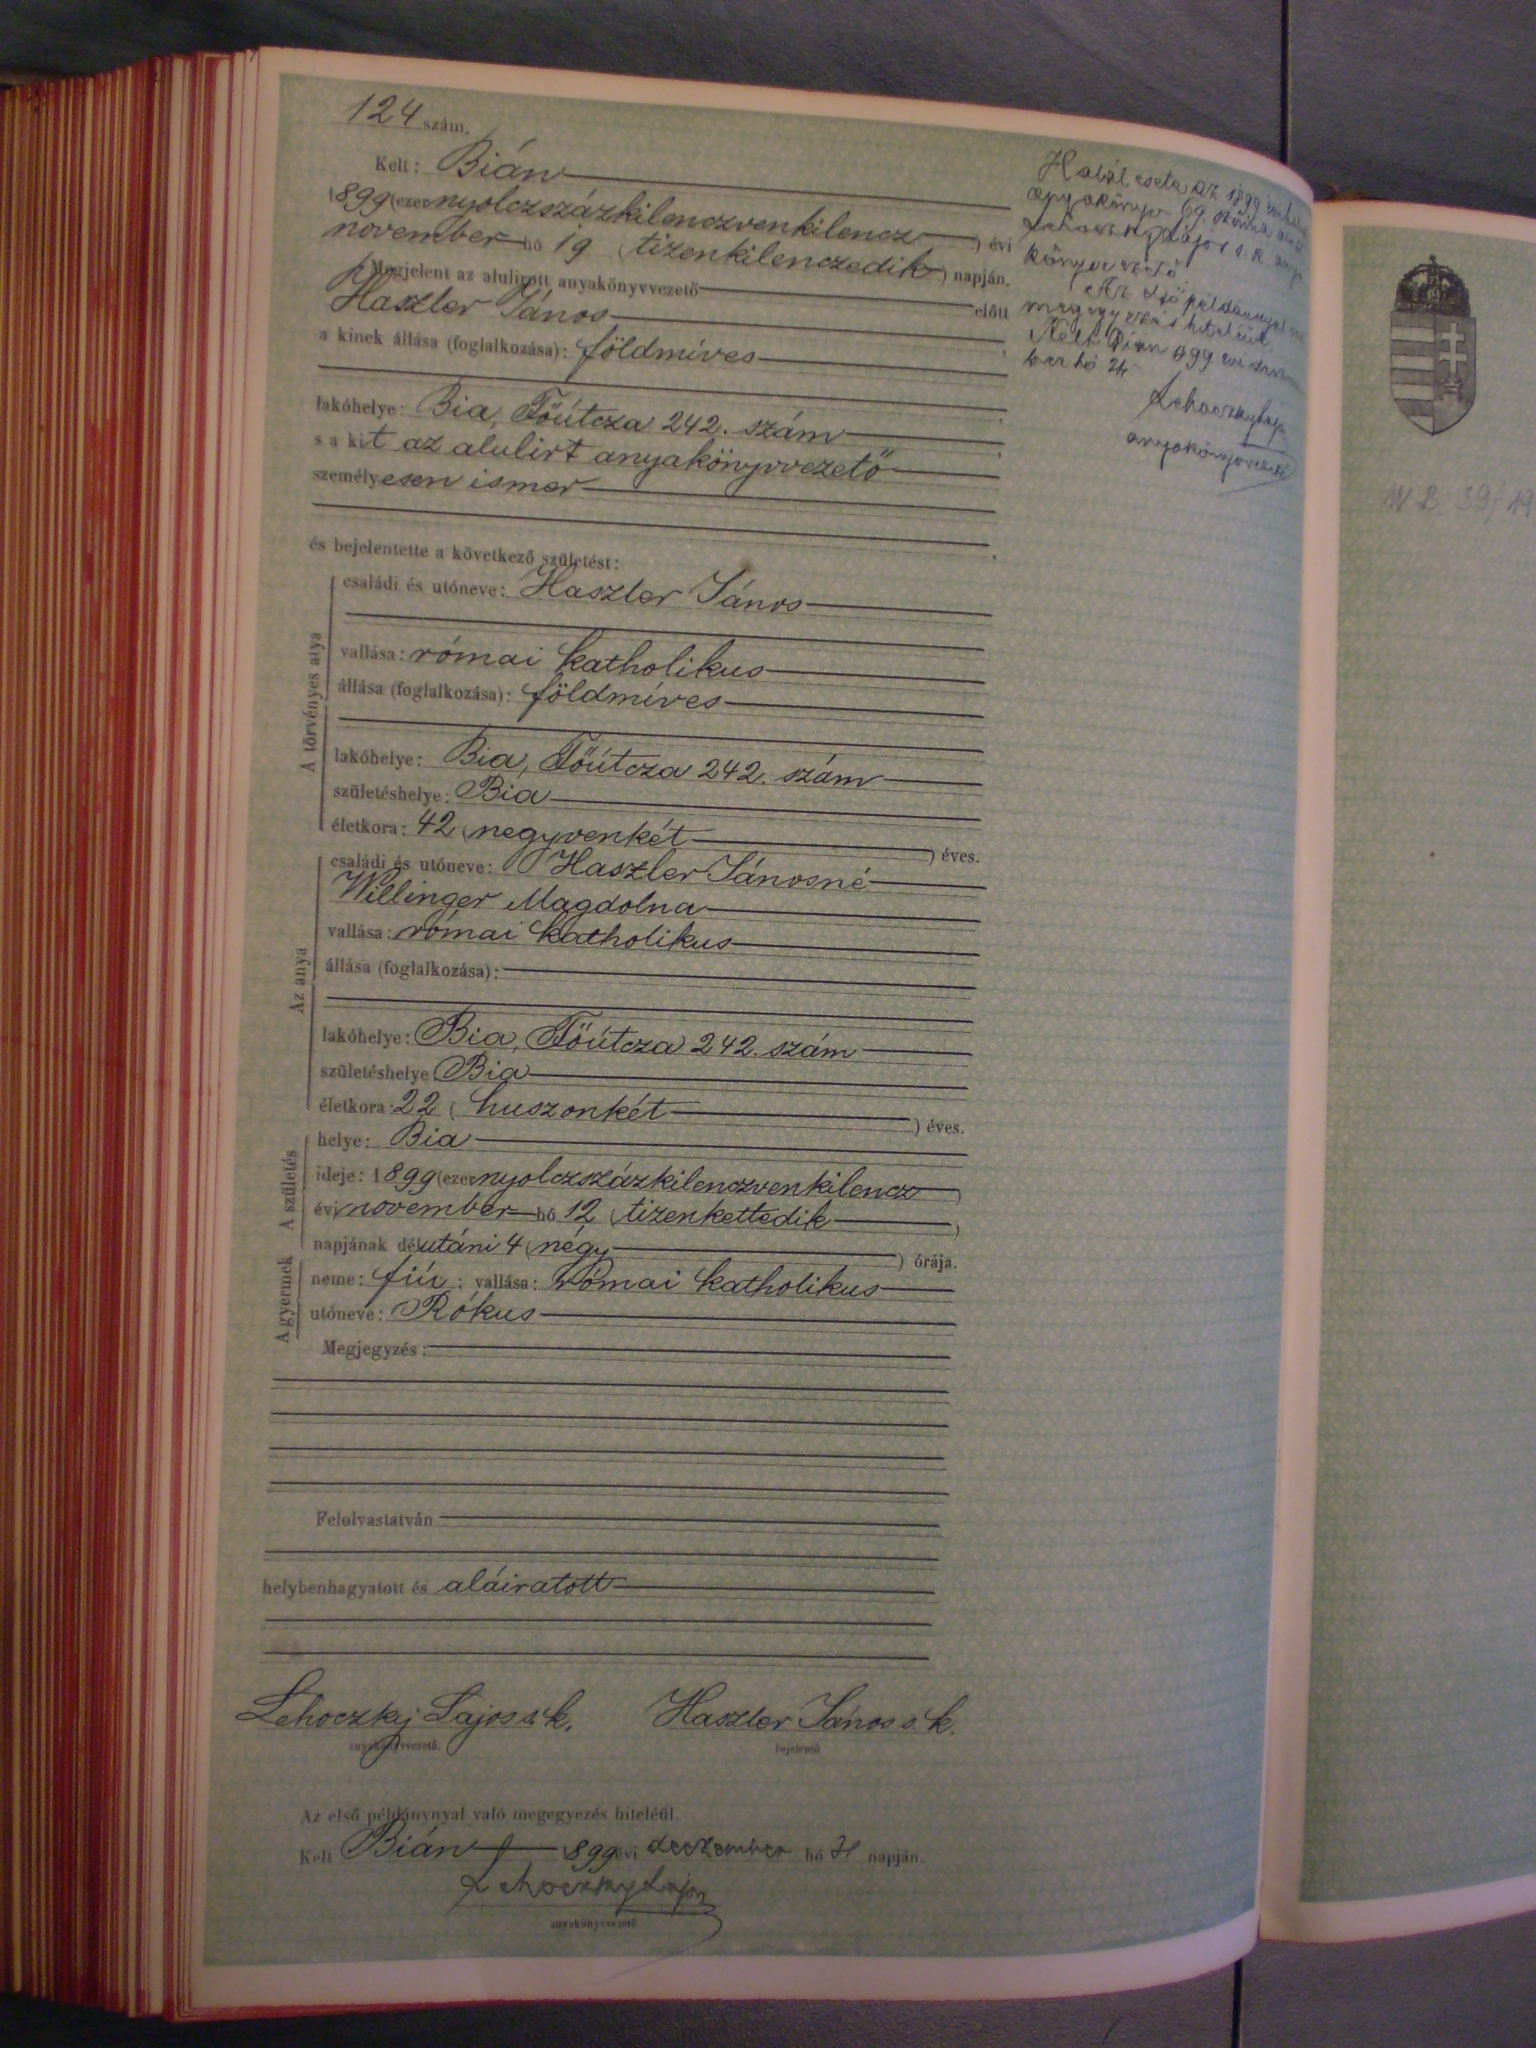 124 szám.
Kelt: Bián
1899 (ezer nyolczszázkilenczvenkilencz) évi
november hó 19 (tizenkilenczedik) napján.
Megjelent az alulirott anyakönyvvezető előtt
Haszler János
a kinek állása (foglalkozása): földmíves
lakóhelye: Bia, Főútcza 242. szám
s a kit az alulirt anyakönyvvezető
személyesen ismer
és bejelentette a következő születést:
A törvényes atya
családi és utóneve: Haszler János
vallása: római katholikus
állása (foglalkozása): földmíves
lakóhelye: Bia, Főútcza 242. szám
születéshelye: Bia
életkora: 42 (negyvenkét) éves.
Az anya
családi és utóneve: Haszler Jánosné
Willinger Magdolna
vallása: római katholikus
állása (foglalkozása):
lakóhelye: Bia, Főútcza 242. szám
születéshelye Bia
életkora: 22 (huszonkét) éves.
A születés
helye: Bia
ideje: 1899 (ezer nyolczszázkilenczvenkilencz)
évi november hó 12 (tizenkettedik)
napjának délutáni 4 (négy) órája.
A gyermek
neme: fiú; vallása: római katholikus
utóneve: Rókus
Megjegyzés:
Felolvastatván
helybenhagyatott és aláiratott
Lehoczky Lajos s. k. Haszler János s. k.
anyakönyvvezető. bejelentő
Az első példánynyal való megegyezés hiteléül.
Kelt Bián 1899 évi deczember hó 31 napján.
Lehoczky Lajos
anyakönyvvezető
Halál esete az 1899 évi
anyakönyv 69. száma alatt
Lehoczky Lajos s. k. anya
könyvvezető
Az első példánnyal
megegyezés hiteléül
Kelt Bián 899 évi
ber hó 24
Lehoczky Lajos
anyakönyvvezető
W B 39/19